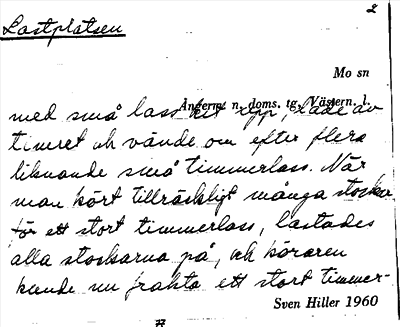 Lastplatsen
2
Mo sn
Ångerm. n. doms. tg. Västern. l.
med små lass hit upp, lade av
timret och vände om efter flera
liknande små timmerlass. När
man kört tillräckligt många stockar
för ett stort timmerlass, lastades
alla stockarna på, och köraren
kunde nu frakta ett stort timmer-
Sven Hiller 1960